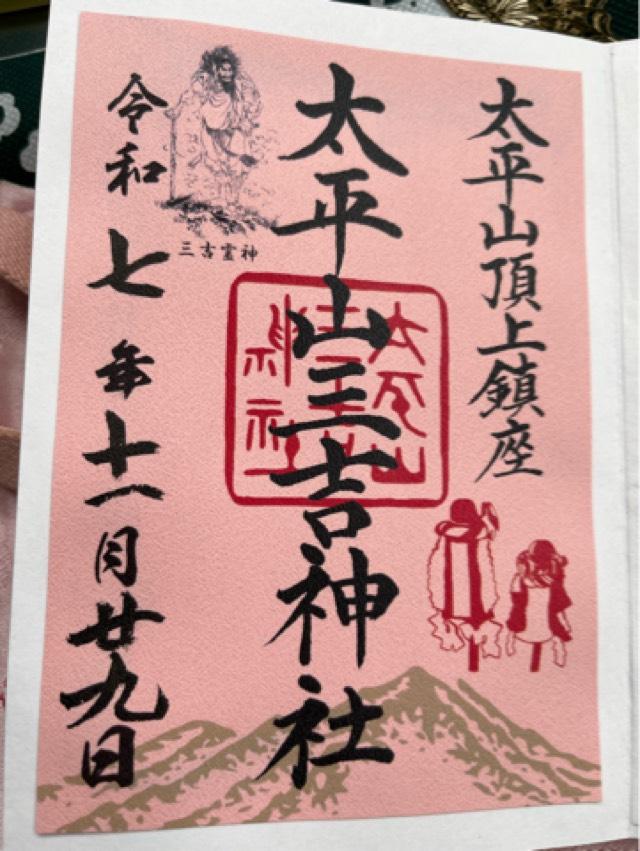 太平山頂上鎮座
太平山三吉神社
太平山三吉神社
三吉霊神
令和七年十一月廿九日